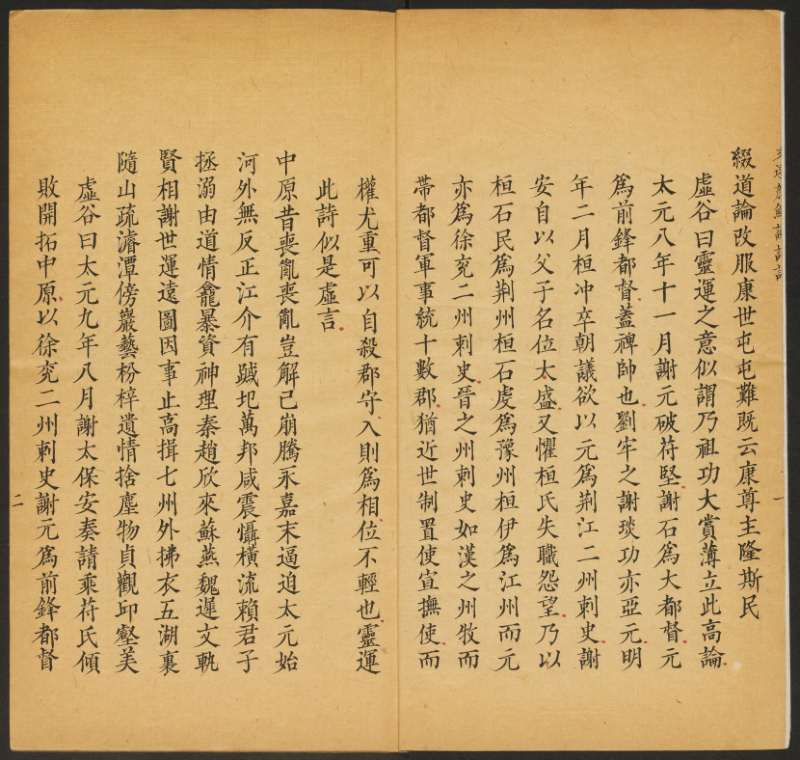 綴道論改服康世屯屯難既云康尊主隆斯民
虛谷曰靈運之意似謂乃祖功大賞薄立此高論
太元八年十一月謝元破苻堅謝石為大都督元
為前鋒都督蓋裨帥也劉牢之謝琰功亦亞元明
年二月桓冲卒朝議欲以元為荆江二州刺史謝
安自以父子名位太盛又懼桓氏失職怨望乃以
桓石民為荆州桓石虔為豫州桓伊為江州而元
亦為徐兖二州刺史晉之州刺史如漢之州牧而
帶都督軍事統十數郡猶近世制置使宣撫使而
權尤重可以自殺郡守入則為相位不輕也靈運
此詩似是虛言
中原昔喪亂喪亂豈解已崩騰永嘉末逼迫太元始
河外無反正江介有蹴圮萬邦咸震懾橫流賴君子
拯溺由道情龕暴資神理秦趙欣來蘇燕魏遲文軌
賢相謝世運遠圖因事止高揖七州外拂衣五湖裏
隨山疏濬潭傍巖藝枌梓遺情捨塵物貞觀邱壑美
虛谷曰太元九年八月謝太保安奏請乘苻氏傾
敗開拓中原以徐兖二州刺史謝元為前鋒都督
一
二